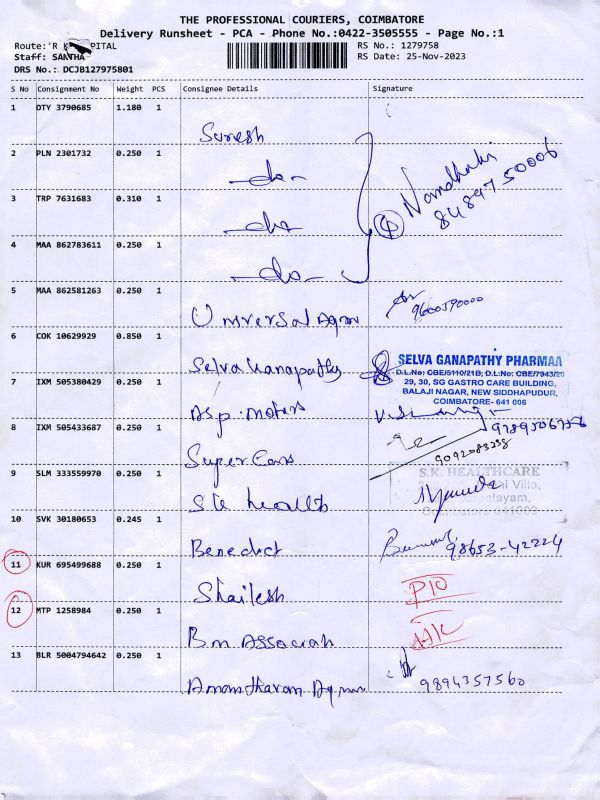 THE PROFESSIONAL COURIERS, COIMBATORE
Delivery Runsheet - PCA - Phone No.:0422-3505555 - Page No.:1
Route:'R K PITAL
RS No.: 1279758
Staff: SANTHA
RS Date: 25-Nov-2023
DRS No.: DCJB127975801
S No Consignment No Weight PCS Consignee Details Signature
1 OTY 3790685 1.180 1
Suresh
2 PLN 2301732 0.250 1
-do-
3 TRP 7631683 0.310 1
-do-
4 MAA 862783611 0.250 1
-do-
4 Nandhaki
84897 50006
5 MAA 862581263 0.250 1
Universal Agen
9600590000
6 COK 10629929 0.850 1
Selva Ganapathy
SELVA GANAPATHY PHARMAA
D.L.No: CBE/5110/21B; D.L.No: CBE/7943/20
29, 30, SG GASTRO CARE BUILDING,
BALAJI NAGAR, NEW SIDDHAPUDUR,
COIMBATORE- 641 006
7 IXM 505380429 0.250 1
Asp. motors
8 IXM 505433687 0.250 1
Super Cars
9092083338
9 SLM 333559970 0.250 1
SK health
S.K. HEALTHCARE
Villa,
Coimbatore
10 SVK 30180653 0.245 1
Benedict
98653-42224
11 KUR 695499688 0.250 1
Shailesh
12 MTP 1258984 0.250 1
Bm Associah
13 BLR 5004794642 0.250 1
Anamtharam Agen
9894357560